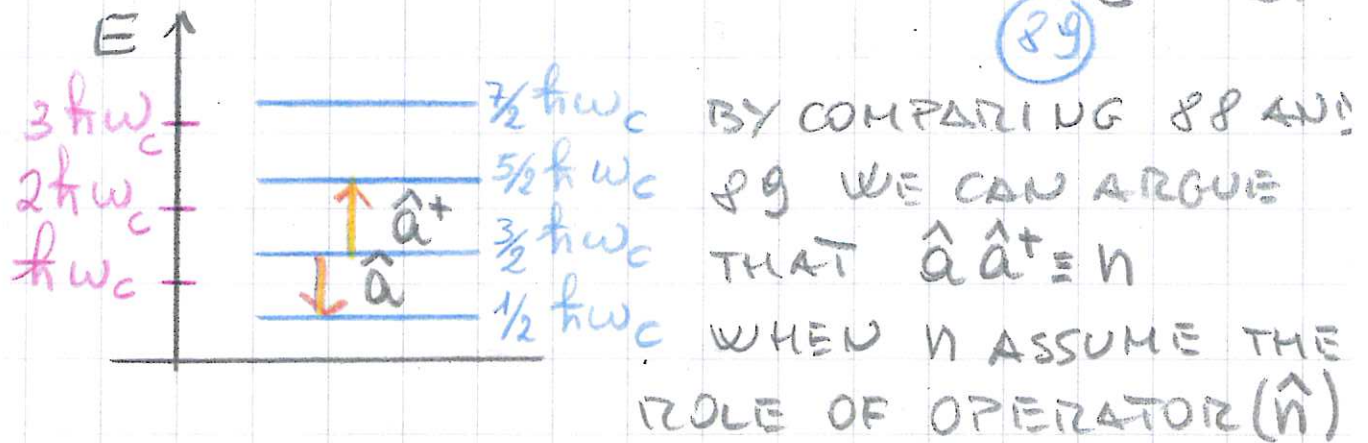 89
E
3ħω_c
2ħω_c
ħω_c
7/2 ħω_c
5/2 ħω_c
3/2 ħω_c
1/2 ħω_c
â⁺
â
BY COMPARING 88 AND
89 WE CAN ARGUE
THAT â â⁺ ≡ n
WHEN n ASSUME THE
ROLE OF OPERATOR (n̂)